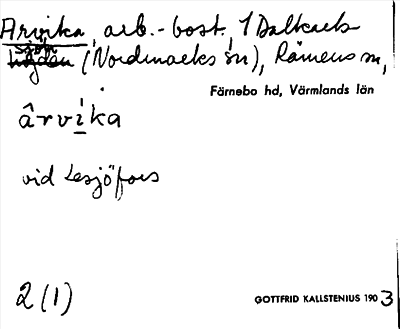 Arvika, arb.-bost. 1 Dalkarls
sjön (Nordmarks sn), Rämens sn,
Färnebo hd, Värmlands län
ârvika
vid Lesjöfors
2 (1)
GOTTFRID KALLSTENIUS 1903